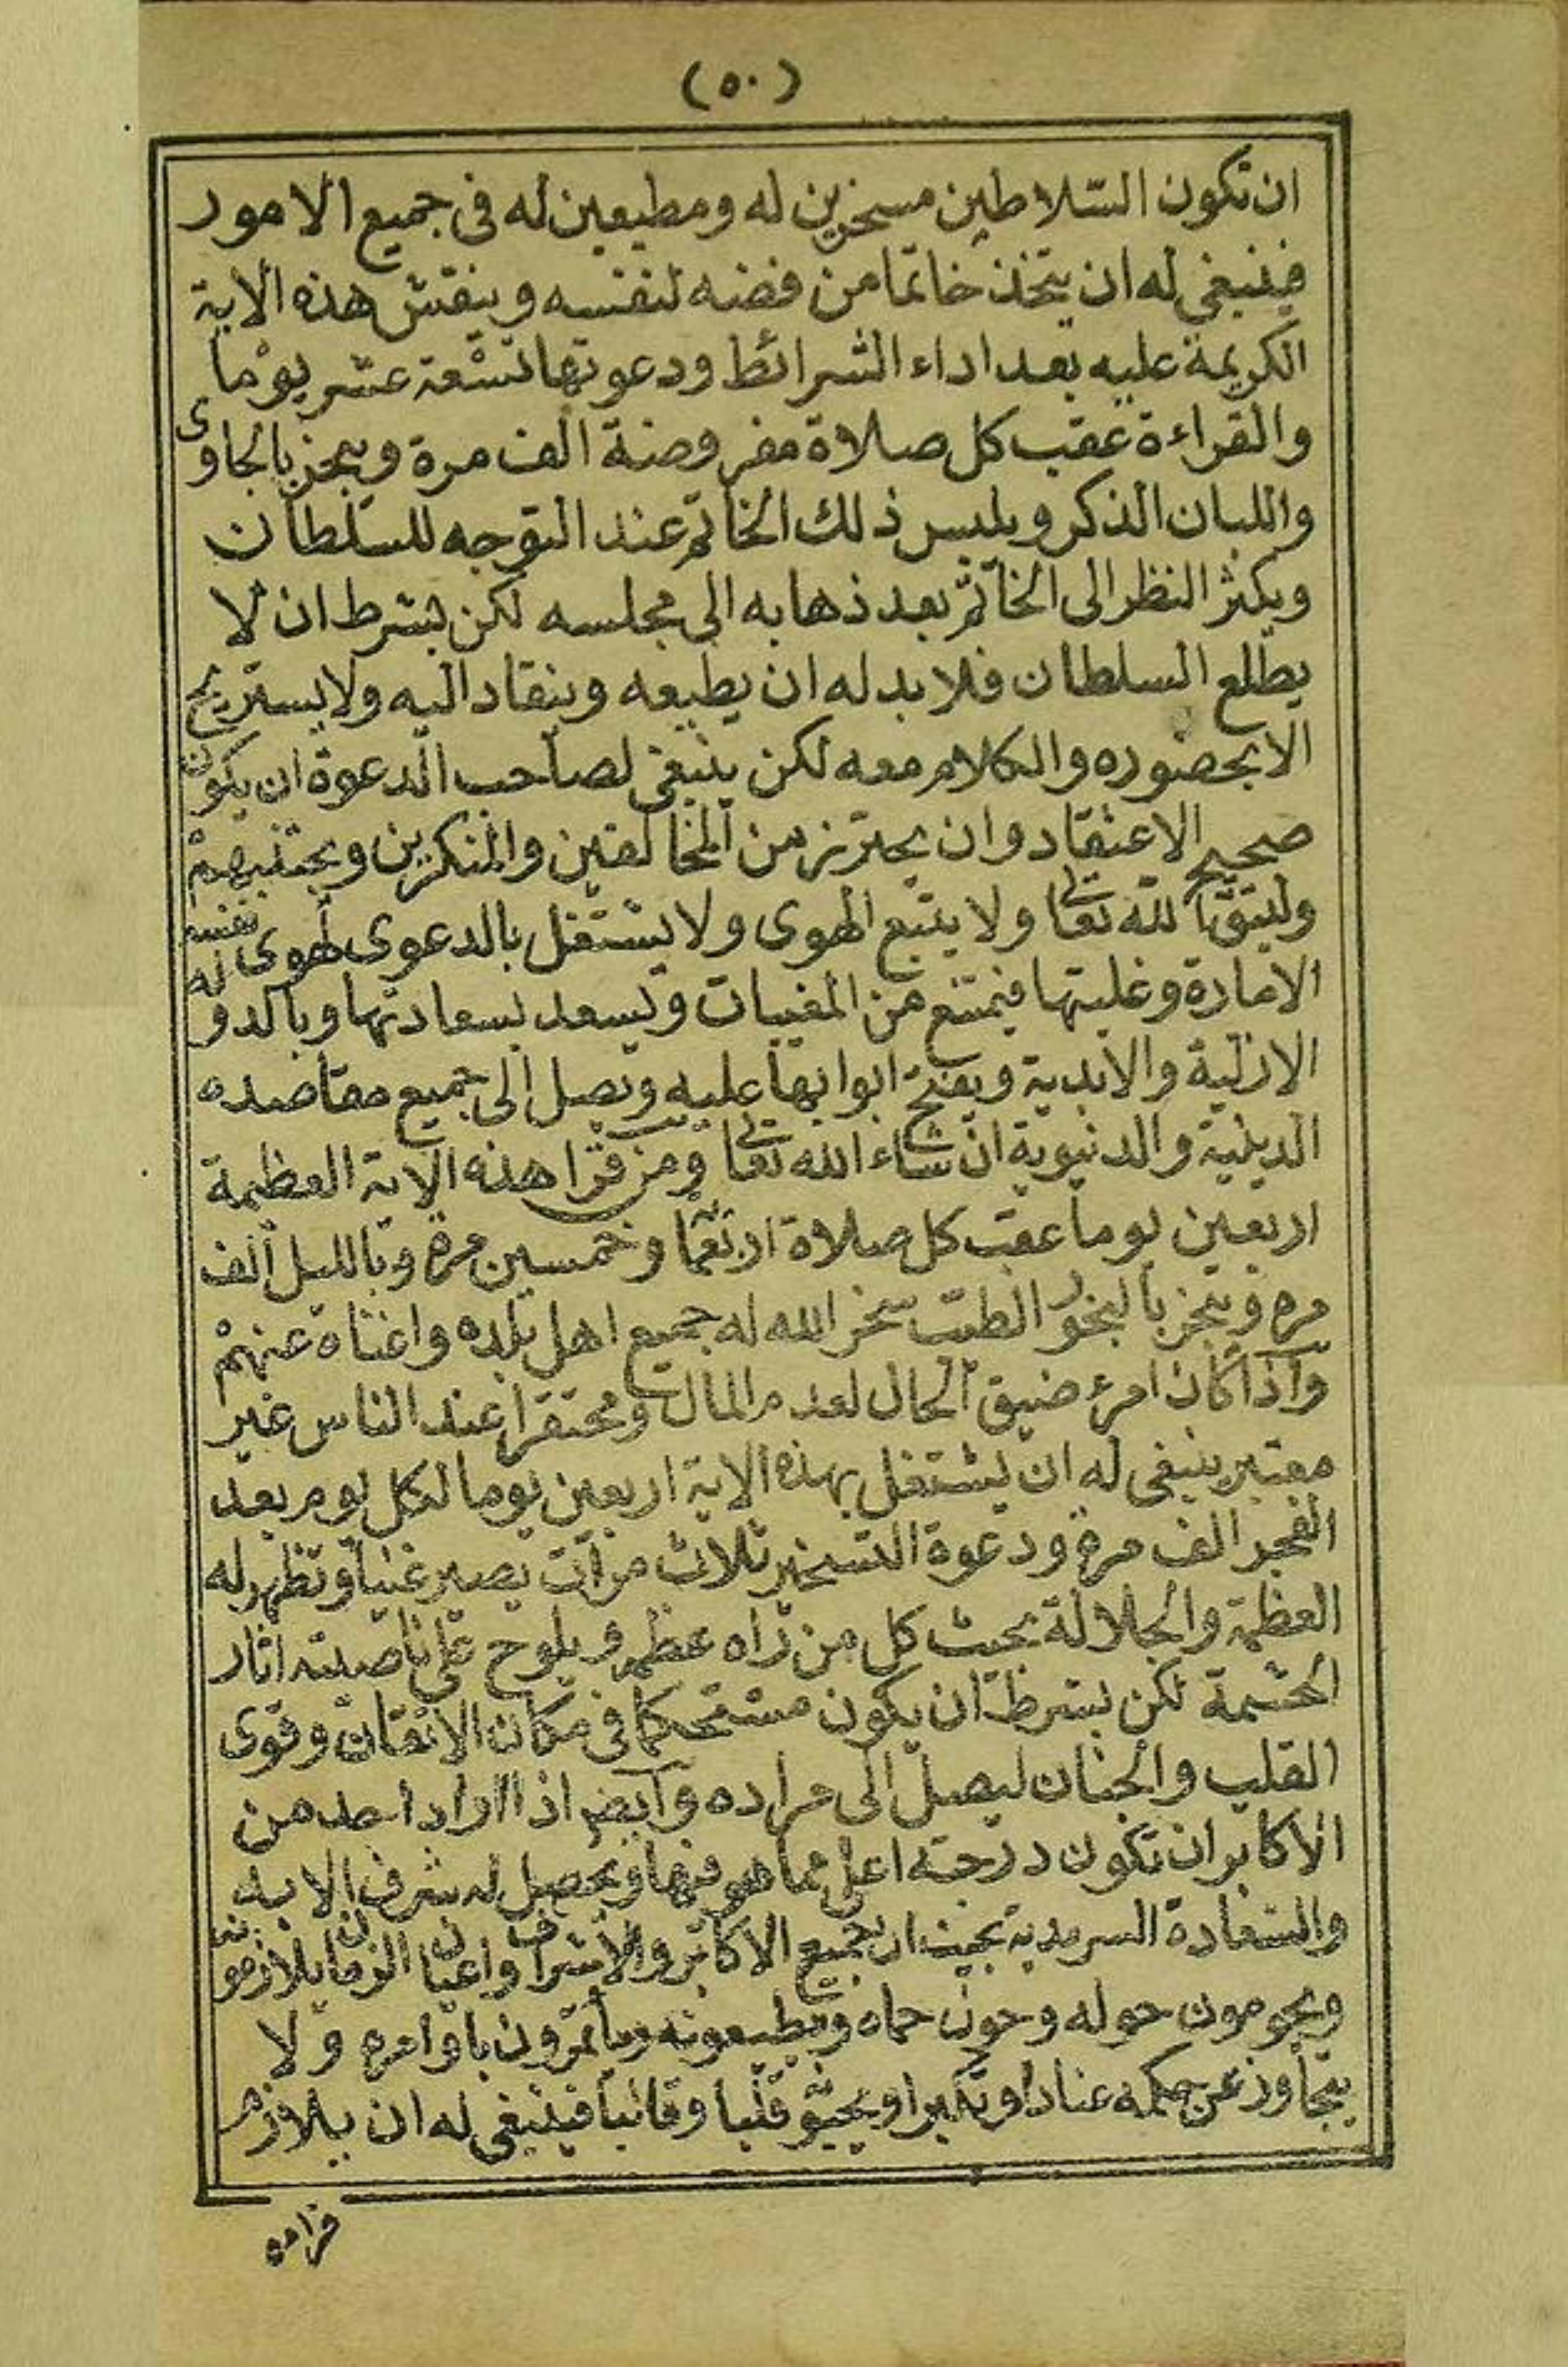 (٥٠)
ان تكون السّلاطين مسخرين له ومطيعين له فى جميع الامور
فينبغى له ان يتخذ خاتما من فضه لنفسه وينقش هذه الاية
الكريمة عليه بعد اداء الشرائط ودعوتها تسعة عشر يوما
والقراءة عقب كل صلاة مفروضة الف مرة ويبخر بالجاوى
واللبان الذكر ويلبس ذلك الخاتم عند التوجه للسلطان
ويكثر النظر الى الخاتم بعد ذهابه الى مجلسه لكن بشرط ان لا
يطلع السلطان فلا بد له ان يطيعه وينقاد اليه ولا يستريح
الا بحضوره والكلام معه لكن ينبغى لصاحب الدعوة ان يكون
صحيح الاعتقاد وان يحترز من المخالفين والمنكرين ويجتنبهم
وليتق الله تعالى ولا يتبع الهوى ولا يشتغل بالدعوى لهوى نفسه
الامارة وغلبتها فيمتنع من المغيبات ويسعد بسعادتها وبالدوله
الازلية والابدية ويفتح ابوابها عليه ويصل الى جميع مقاصده
الدينية والدنيوية ان شاء الله تعالى ومن قرا هذه الاية العظيمة
اربعين يوما عقب كل صلاة اربعمائة وخمسين مرة وبالليل الف
مره ويبخر بالبخور الطيب سخر الله له جميع اهل بلده واغناه عنهم
واذا كان امرء ضيق الحال لعدم المال ومحتقرا عند الناس غير
معتبر ينبغى له ان يشتغل بهذه الاية اربعين يوما لكل يوم بعد
الفجر الف مرة ودعوة التسخير ثلاث مرات يصير غنيا وتظهر له
العظمة والجلالة بحيث كل من راه عظم ويلوح على ناصيته اثار
الحشمة لكن بشرط ان يكون مستحكما فى مكان الاتقان وقوى
القلب والجنان ليصل الى مراده وايضا اذا اراد احد من
الاكابر ان تكون درجته اعلى مما هو فيها ويحصل له شرف الابديه
والسعادة السرمدية بحيث ان جميع الاكابر والاشراف واعيان الزمان يلازمونه
ويحومون حوله وحول حماه ويطيعونه ويأتمرون باوامره ولا
يتجاوز عن حكمه عنادا وتكبرا قلبا وقالبا فينبغى له ان يلازم